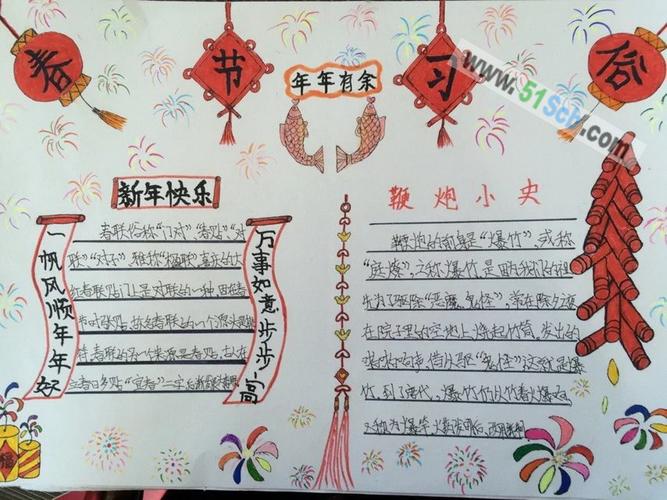 春节习俗
年年有余
www.51Sch.com
新年快乐
一帆风顺年年好
万事如意步步高
春联俗称“门对”、“春贴”、“对
联”、“对子”，雅称“楹联”
红春联贴门上是对联的一种，因在春
节时张贴，故名春联的一个源头是桃
符春联的另一个来源是春贴，古人在
立春日多贴“宜春”二字后
鞭炮小史
鞭炮的前身是“爆竹”，或称
“庭燎”之称爆竹，是由我们的祖
先为了驱除“恶魔、鬼怪”常在除夕夜
在院子里的空地上，烧起竹筒，发出的
响声，借以驱“鬼怪”这就是爆
竹，到了唐代，爆竹
又称为爆竿，火药
福